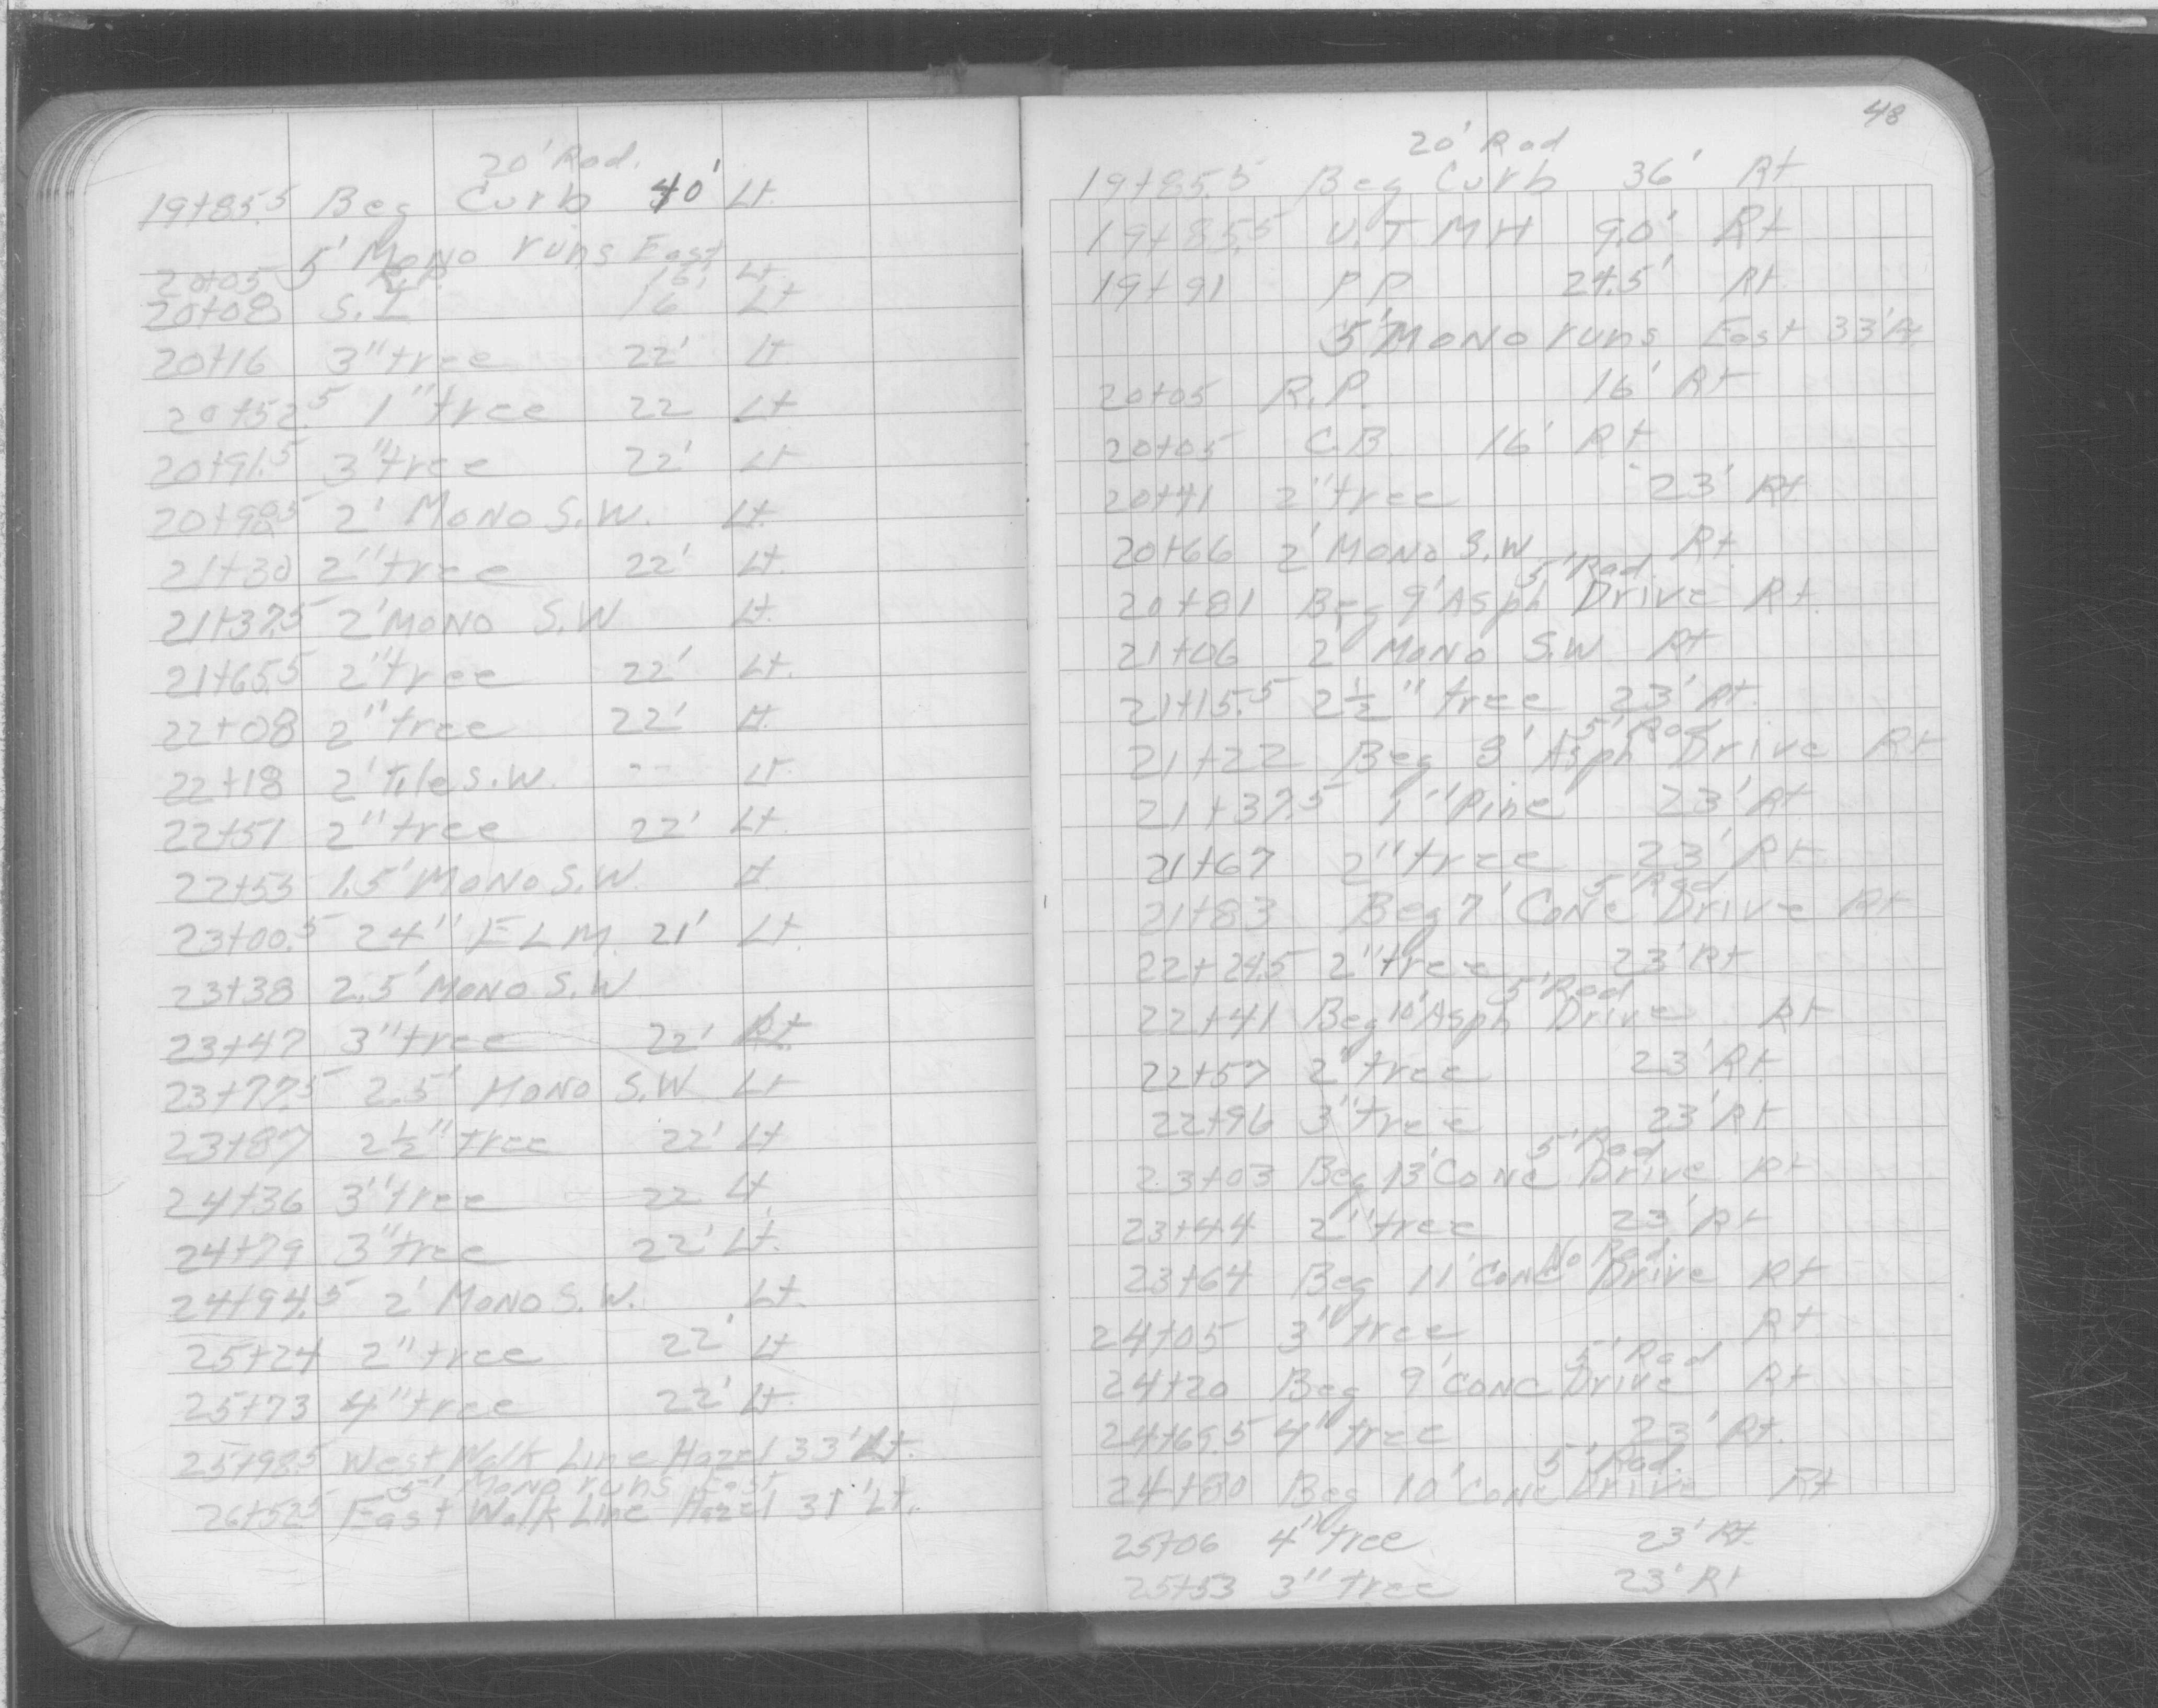 20' Rad.
19+85.5 Beg Curb 40' Lt.
5' Mono runs East
20+05 R.P. 16' Lt.
20+08 S.I 16 Lt
20+16 3" tree 22' Lt
20+52.5 1" tree 22 Lt
20+91.5 3" tree 22' Lt
2' Mono S.W. Lt.
21+30 2" tree 22' Lt.
21+37.5 2' Mono S.W Lt.
21+65.5 2" tree 22' Lt.
22+08 2" tree 22' Lt.
22+18 2' Tile S.W. -- Lt.
22+51 2" tree 22' Lt.
22+55 1.5' Mono S.W. Lt.
23+00.5 24" ELM. 21' Lt.
23+38 2.5' Mono S.W
23+47 3" tree 22'
23+77.5 2.5' Mono S.W Lt
23+87 2½" tree 22' Lt
24+36 3" tree 22 Lt
24+79 3" tree 22' Lt.
24+94.5 2' Mono S.W. Lt.
25+24 2" tree 22' Lt
25+73 4" tree 22' Lt.
25+98.5 West Walk Line Hazel 33' Lt.
5' Mono runs East
26+52.5 East Walk Line Hazel 31' Lt.
48
20' Rad
19+85.5 Beg Curb 36' Rt
19+85.5 U.T MH 9.0' Rt
19+91 P.P. 24.5' Rt.
5' Mono runs East 33' Rt
20+05 R.P. 16' Rt
20+05 C.B. 16' Rt
20+41 2" tree 23' Rt
20+66 2' Mono S.W Rt
5' Rad.
20+81 Beg 9' Asph Drive Rt.
21+06 2' Mono S.W Rt
21+15.5 2½" tree 23' Rt.
5' Rad
21+22 Beg 8' Asph Drive Rt
21+37.5 1" Pine 23' Rt
21+67 2" tree 23' Rt
5' Rad
21+83 Beg 7' Conc Drive Rt
22+24.5 2" tree 23' Rt
5' Rad
22+41 Beg 10' Asph Drive Rt
22+57 2" tree 23' Rt
22+96 3" tree 23' Rt
5' Rad
23+03 Beg 13' Conc Drive Rt
23+44 2" tree 23' Rt
No Rad.
23+64 Beg 11' Conc Drive Rt
24+05 3" tree Rt
5' Rad
24+20 Beg 9' Conc Drive Rt
24+69.5 4" tree 23' Rt.
5' Rad.
24+80 Beg 10' Conc Drive Rt
25+06 4" tree 23' Rt
25+53 3" tree 23' Rt